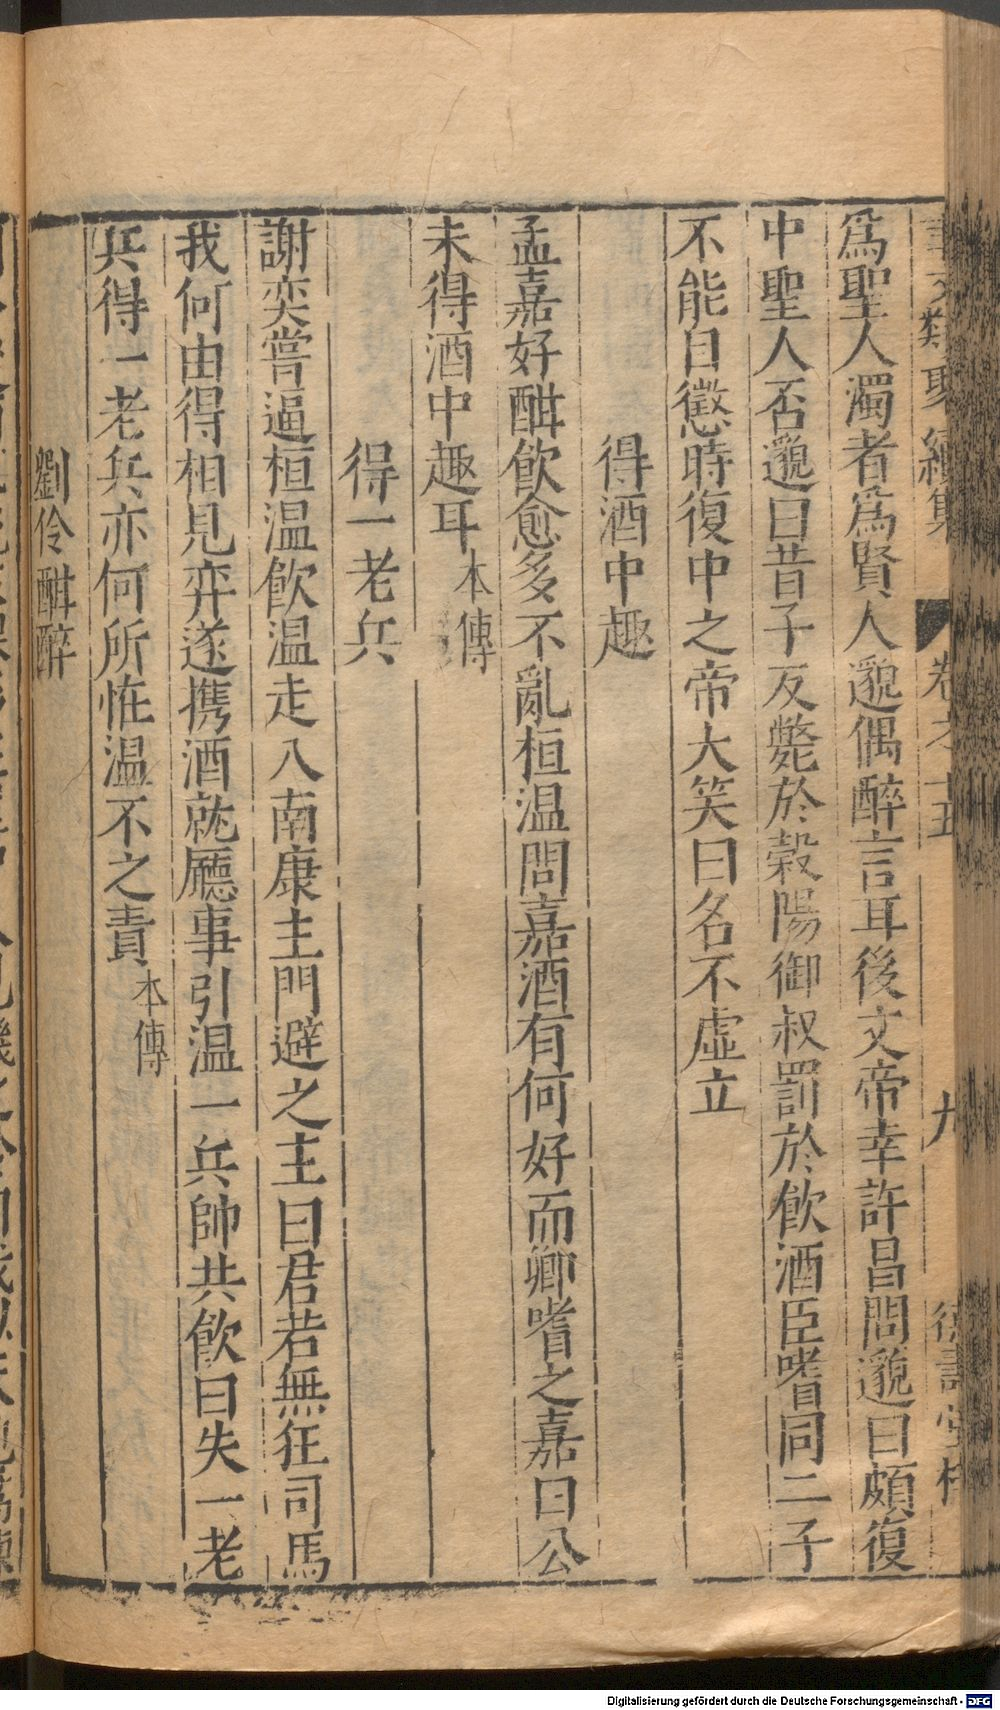 事文類聚續集 卷之十五 九 德壽堂梓
爲聖人濁者爲賢人邈偶醉言耳後文帝幸許昌問邈曰頗復
中聖人否邈曰昔子反斃於穀陽御叔罰於飮酒臣嗜同二子
不能自懲時復中之帝大笑曰名不虛立
得酒中趣
孟嘉好酣飮愈多不亂桓温問嘉酒有何好而卿嗜之嘉曰公
未得酒中趣耳本傳
得一老兵
謝奕嘗逼桓温飮温走入南康主門避之主曰君若無狂司馬
我何由得相見弈遂携酒就廳事引温一兵帥共飮曰失一老
兵得一老兵亦何所恠温不之責本傳
劉伶酣醉
Digitalisierung gefördert durch die Deutsche Forschungsgemeinschaft - DFG